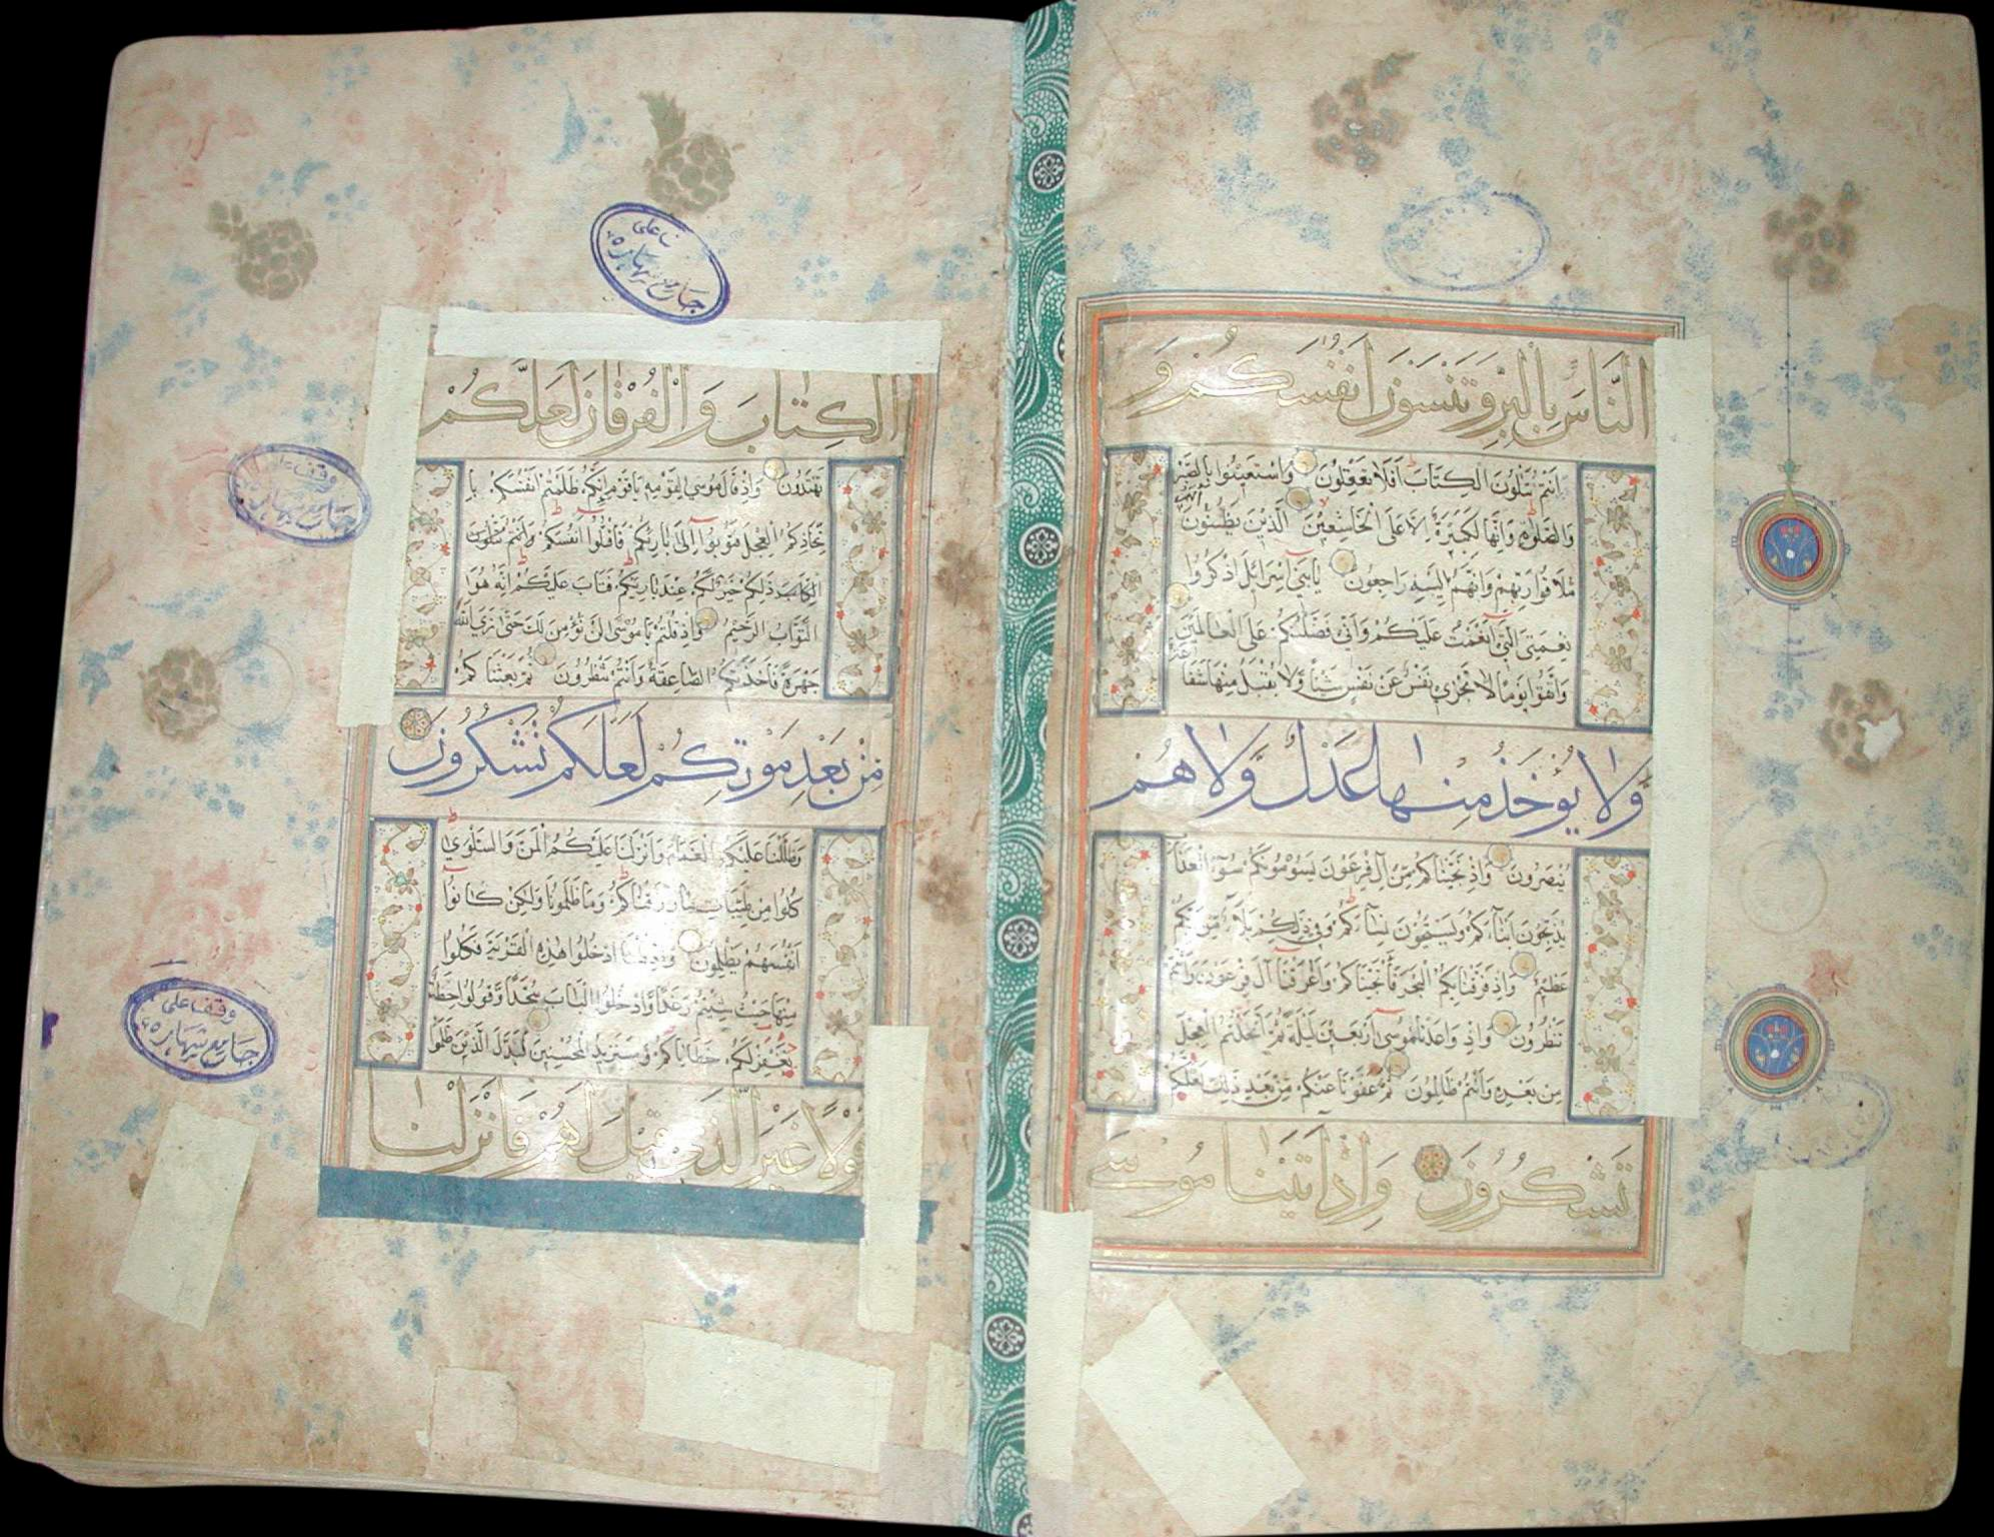 النَّاسَ بِالْبِرِّ وَتَنْسَوْنَ اَنْفُسَكُمْ وَ
اَنْتُمْ تَتْلُونَ الْكِتَابَ اَفَلَا تَعْقِلُونَ وَاسْتَعِينُوا بِالصَّبْرِ
وَالصَّلٰوةِ وَاِنَّهَا لَكَبِيرَةٌ اِلَّا عَلَى الْخَاشِعِينَ الَّذِينَ يَظُنُّونَ اَنَّهُمْ
مُلَاقُوا رَبِّهِمْ وَاَنَّهُمْ اِلَيْهِ رَاجِعُونَ يَابَنِي اِسْرَائِلَ اذْكُرُوا
نِعْمَتِيَ الَّتِي اَنْعَمْتُ عَلَيْكُمْ وَاَنِّي فَضَّلْتُكُمْ عَلَى الْعَالَمِينَ
وَاتَّقُوا يَوْمًا لَا تَجْزِي نَفْسٌ عَنْ نَفْسٍ شَيْئًا وَلَا يُقْبَلُ مِنْهَا شَفَا
وَلَا يُؤْخَذُ مِنْهَا عَدْلٌ وَلَا هُمْ
يُنْصَرُونَ وَاِذْ نَجَّيْنَاكُمْ مِنْ اٰلِ فِرْعَوْنَ يَسُومُونَكُمْ سُوۤءَ الْعَذَا
يُذَبِّحُونَ اَبْنَاۤءَكُمْ وَيَسْتَحْيُونَ نِسَاۤءَكُمْ وَفِي ذٰلِكُمْ بَلَاۤءٌ مِنْ رَبِّكُمْ
عَظِيمٌ وَاِذْ فَرَقْنَا بِكُمُ الْبَحْرَ فَاَنْجَيْنَاكُمْ وَاَغْرَقْنَا اٰلَ فِرْعَوْنَ وَاَنْتُمْ
تَنْظُرُونَ وَاِذْ وَاعَدْنَا مُوسٰى اَرْبَعِينَ لَيْلَةً ثُمَّ اتَّخَذْتُمُ الْعِجْلَ
مِنْ بَعْدِهِ وَاَنْتُمْ ظَالِمُونَ ثُمَّ عَفَوْنَا عَنْكُمْ مِنْ بَعْدِ ذٰلِكَ لَعَلَّكُمْ
تَشْكُرُونَ وَاِذْ اٰتَيْنَا مُوسَى
الْكِتَابَ وَالْفُرْقَانَ لَعَلَّكُمْ
تَهْتَدُونَ وَاِذْ قَالَ مُوسٰى لِقَوْمِهِ يَاقَوْمِ اِنَّكُمْ ظَلَمْتُمْ اَنْفُسَكُمْ بِا
تِّخَاذِكُمُ الْعِجْلَ فَتُوبُوا اِلٰى بَارِئِكُمْ فَاقْتُلُوا اَنْفُسَكُمْ وَاَنْتُمْ تَتْلُونَ
الْكِتَابَ ذٰلِكُمْ خَيْرٌ لَكُمْ عِنْدَ بَارِئِكُمْ فَتَابَ عَلَيْكُمْ اِنَّهُ هُوَ ا
التَّوَّابُ الرَّحِيمُ وَاِذْ قُلْتُمْ يَا مُوسٰى لَنْ نُؤْمِنَ لَكَ حَتّٰى نَرَى اللّٰهَ
جَهْرَةً فَاَخَذَتْكُمُ الصَّاعِقَةُ وَاَنْتُمْ تَنْظُرُونَ ثُمَّ بَعَثْنَاكُمْ
مِنْ بَعْدِ مَوْتِكُمْ لَعَلَّكُمْ تَشْكُرُونَ
وَظَلَّلْنَا عَلَيْكُمُ الْغَمَامَ وَاَنْزَلْنَا عَلَيْكُمُ الْمَنَّ وَالسَّلْوٰى
كُلُوا مِنْ طَيِّبَاتِ مَا رَزَقْنَاكُمْ وَمَا ظَلَمُونَا وَلٰكِنْ كَانُوا
اَنْفُسَهُمْ يَظْلِمُونَ وَاِذْ قُلْنَا ادْخُلُوا هٰذِهِ الْقَرْيَةَ فَكُلُوا
مِنْهَا حَيْثُ شِئْتُمْ رَغَدًا وَادْخُلُوا الْبَابَ سُجَّدًا وَقُولُوا حِطَّةٌ
نَغْفِرْ لَكُمْ خَطَايَاكُمْ وَسَنَزِيدُ الْمُحْسِنِينَ فَبَدَّلَ الَّذِينَ ظَلَمُوا
قَوْلًا غَيْرَ الَّذِي قِيلَ لَهُمْ فَاَنْزَلْنَا
وقف علی
جامع شهاره